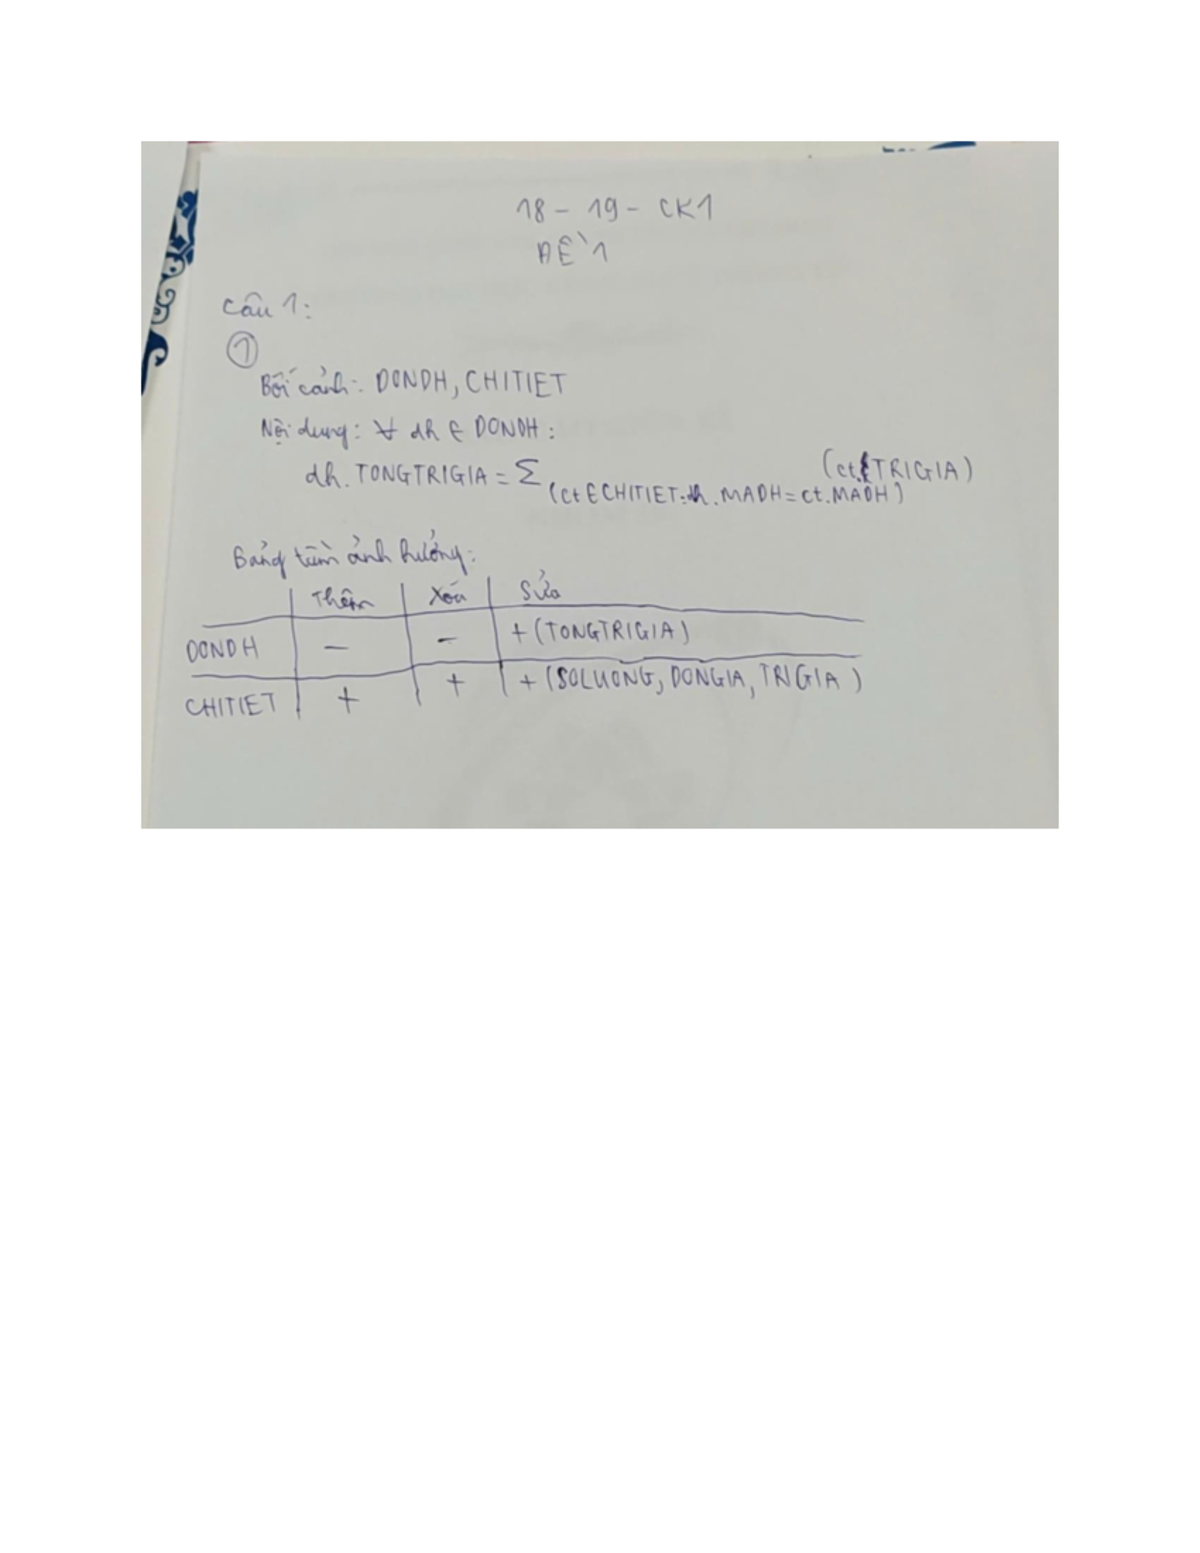 18 - 19 - CK1
ĐỀ 1
Câu 1:
①
Bối cảnh: DONDH, CHITIET
Nội dung: ∀ dh ∈ DONDH:
dh. TONGTRIGIA = Σ (ct.TRIGIA)
(ct ∈ CHITIET: dh.MADH = ct.MADH)
Bảng tầm ảnh hưởng:
Thêm Xóa Sửa
DONDH — — + (TONGTRIGIA)
CHITIET + + + (SOLUONG, DONGIA, TRIGIA)